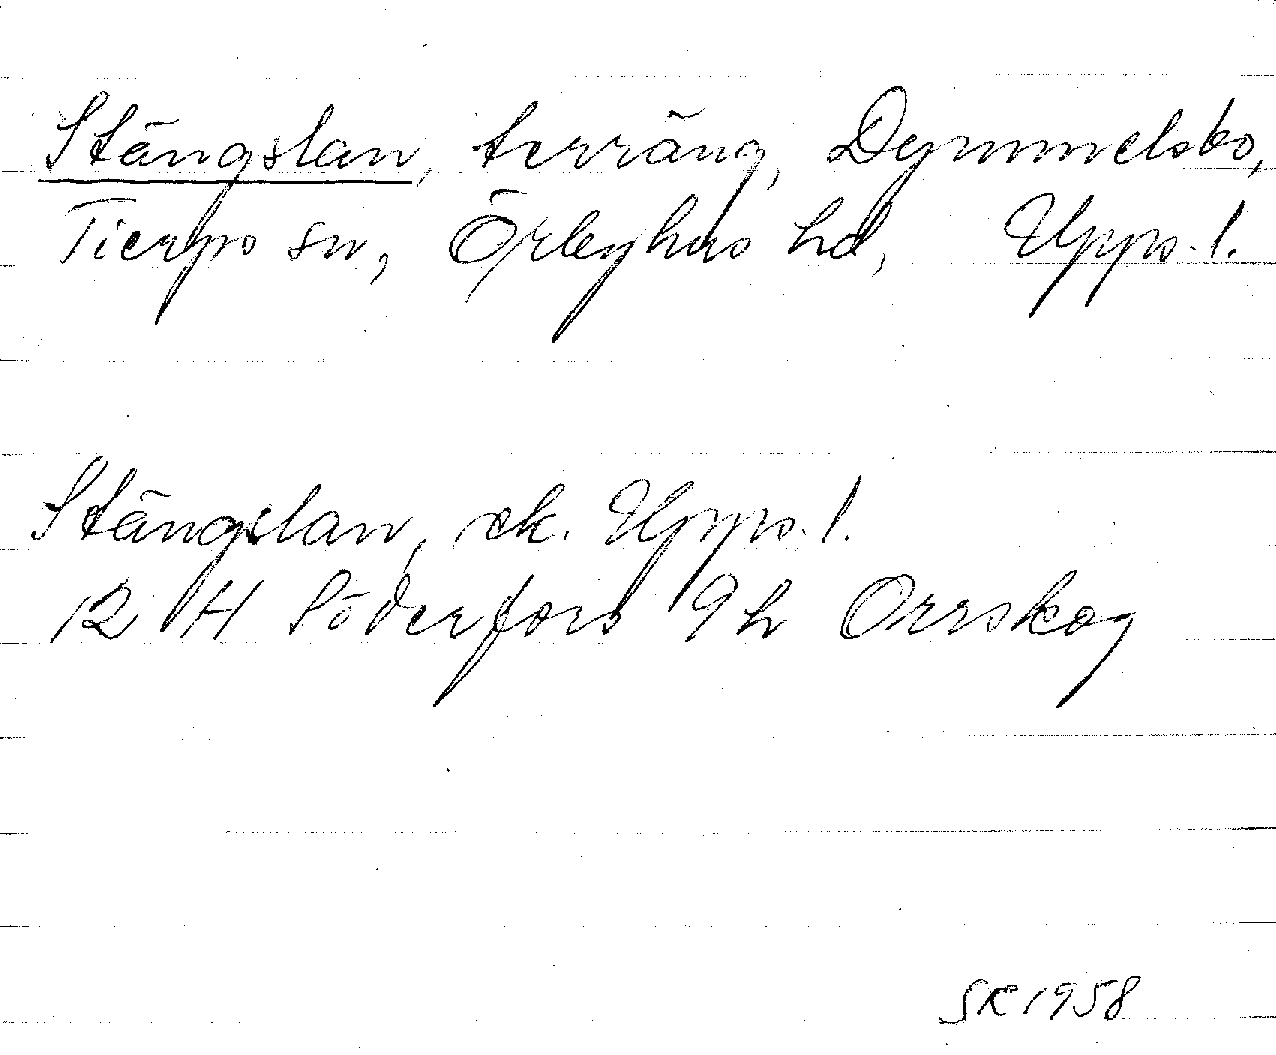 Stängslan, terräng, Dymmelsbo,
Tierps sn, Örbyhus hd, Upps. l.
Stängslan, ek. Upps. l.
12 H Söderfors 9 h Orrskog
SK 1958